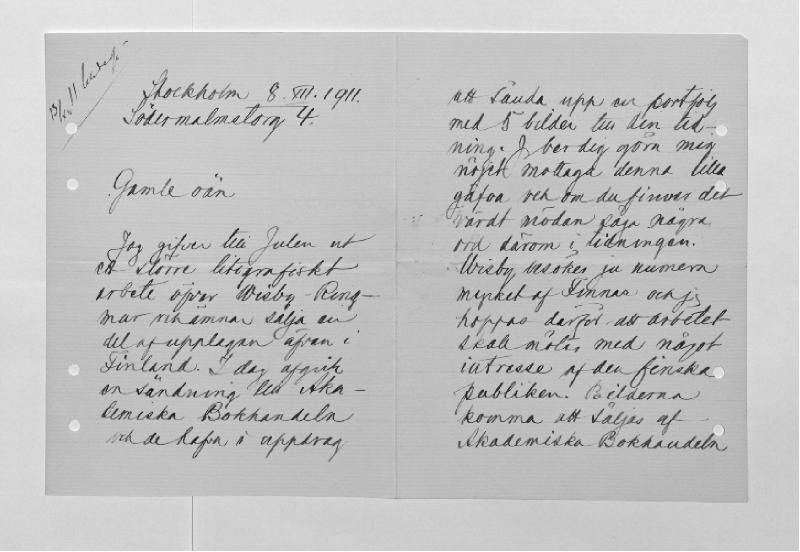 Stockholm 8. XII. 1911.
Södermalmstorg 4.
Gamle vän
Jag gifver till Julen ut
ett större litografiskt
arbete öfver Wisby Ring-
mur och ämnar sälja en
del af upplagan äfven i
Finland. I dag afgick
en sändning till Aka-
demiska Bokhandeln
och de hafva i uppdrag
att sända upp en portfölj
med 5 bilder till din tid-
ning. Jag ber dig göra mig
nöjet mottaga denna lilla
gåfva och om du finner det
värdt mödan säga några
ord därom i tidningen.
Wisby besökes ju numera
mycket af Finnar och jag
hoppas därför att arbetet
skall mötas med något
intresse af den finska
publiken. Bilderna
komma att säljas af
Akademiska Bokhandeln